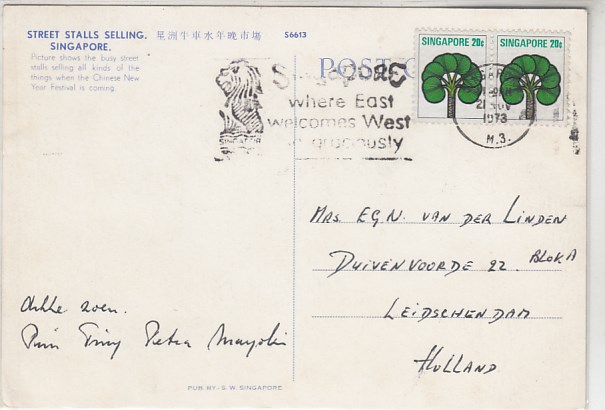 STREET STALLS SELLING. 星洲牛車水年晚市場 S6613
SINGAPORE.
Picture shows the busy street
stalls selling all kinds of the
things when the Chinese New
Year Festival is coming.
POST C
SINGAPORE 20c SINGAPORE 20c
Singapore
where East
welcomes West
graciously
SINGAPORE
21 NOV
1973
M.3.
MRS. E.G.N. VAN DER LINDEN
DUIVENVOORDE 22. BLOK A
LEIDSCHENDAM
HOLLAND
Petra Marjolin
PUB BY:- S. W. SINGAPORE